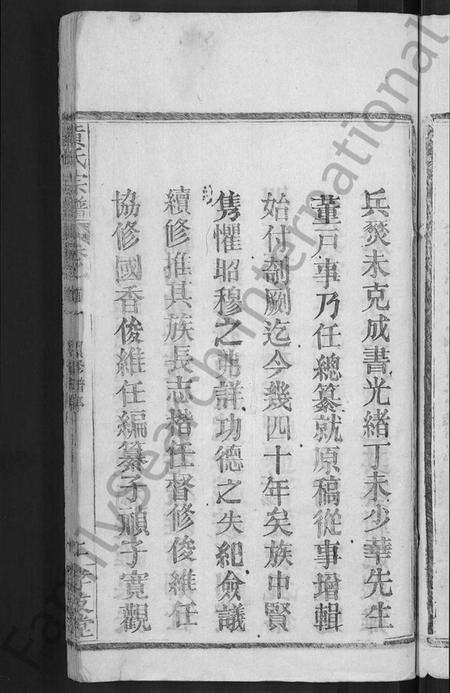 兵燹未克成書光緒丁未少華先生
董戸事乃任總纂就原稿從事增輯
始付剞劂迄今幾四十年矣族中賢
雋懼昭穆之詳功德之失紀僉議
續修推其族長志楷任督修俊維任
協修國香俊維任編纂子禎子寛觀
黄氏宗譜
FamilySearch International